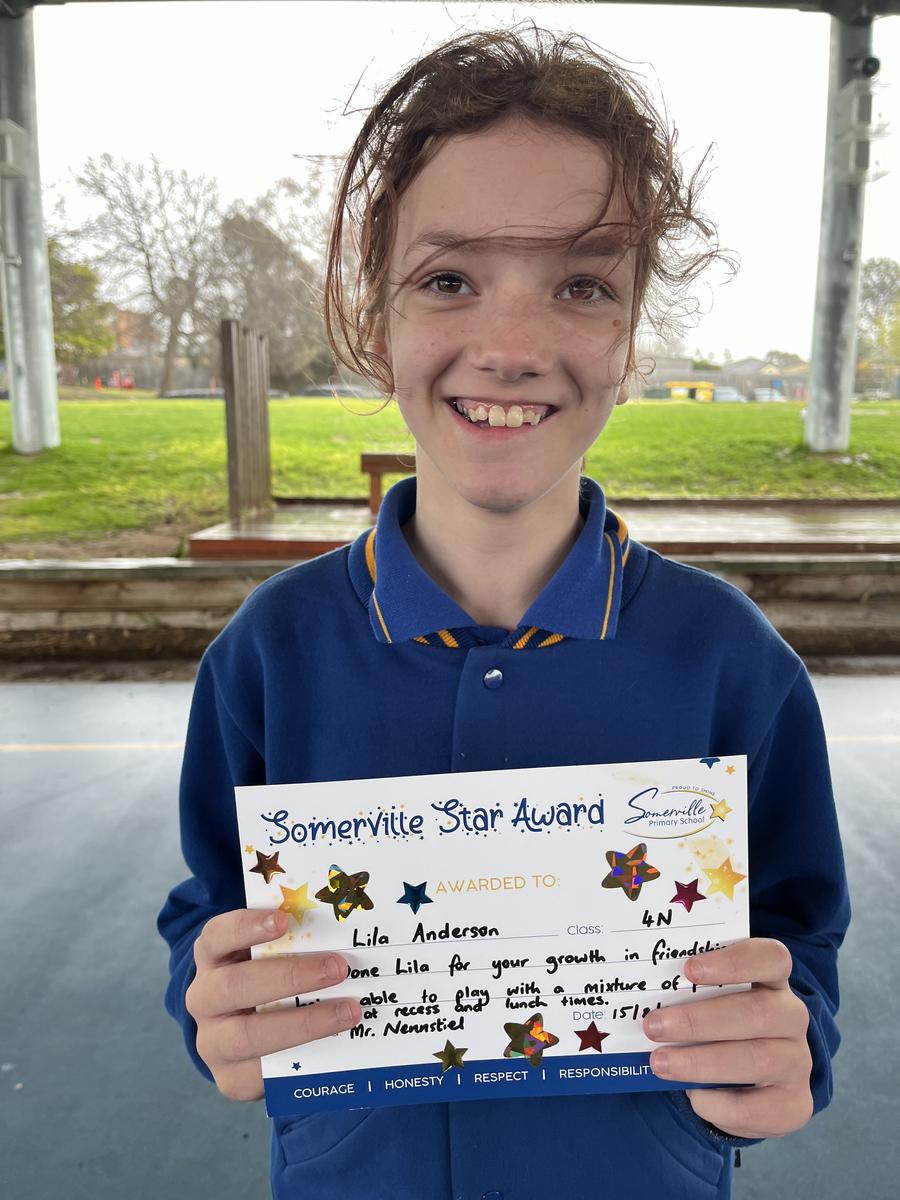 Somerville Star Award
PROUD TO SHINE
Somerville
Primary School
AWARDED TO:
Lila Anderson Class: 4N
Done Lila for your growth in
able to play with a mixture of
at recess and lunch times.
Mr. Nennstiel Date: 15/8/
COURAGE | HONESTY | RESPECT |